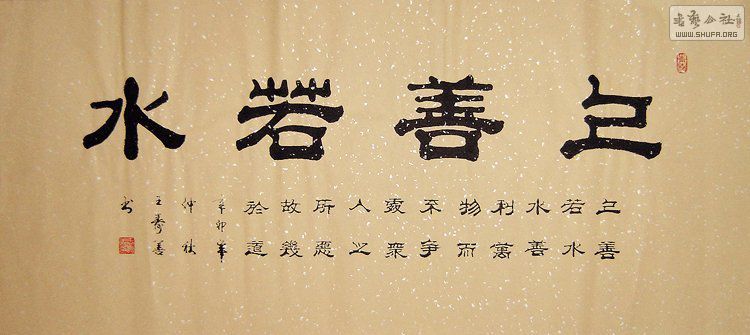 上善若水
上善
若水
水善
利萬
物而
不爭
處眾
人之
所惡
故幾
於道
辛卯年
仲秋
王善
书
书艺公社
WWW.SHUFA.ORG